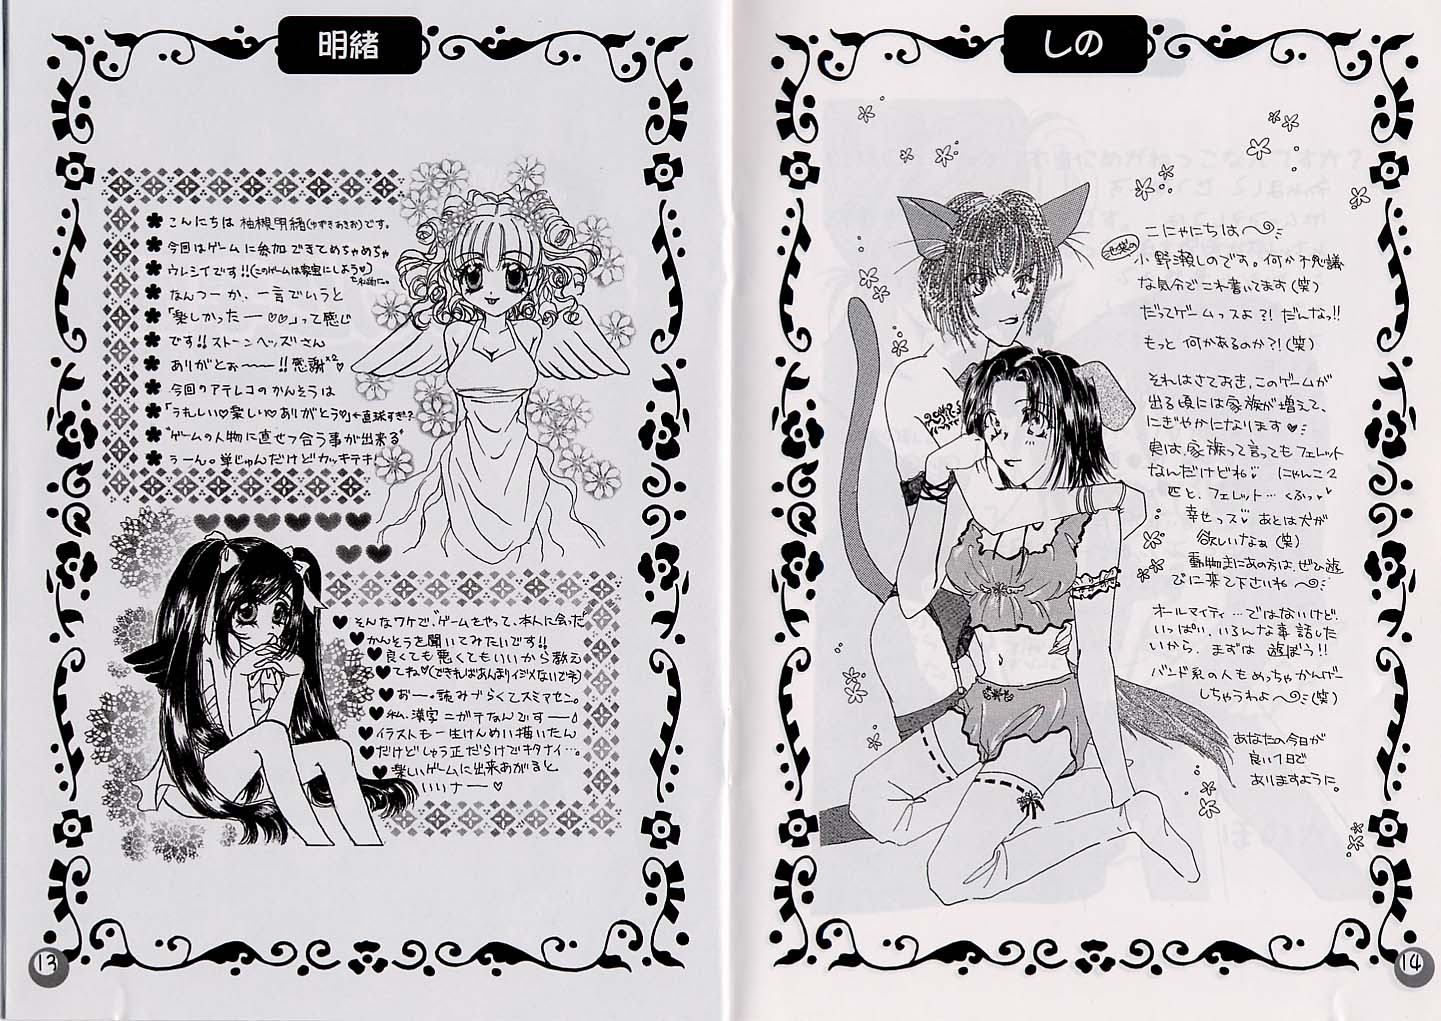 明緒
こんにちは 柚槻明緒(ゆずきあきお)です。
今回はゲームに参加できてめちゃめちゃ
ウレシイです!!(このゲームは家宝にしよう♡)
なんつーか、一言でいうと
「楽しかったー♡♡」って感じ
です!!ストーンヘッズさん
ありがとぉ〜〜!!感謝×2♡
今回のアテレコのかんそうは
「うれしい♡楽しい♡ありがとう♡」←直球すぎ?
"ゲームの人物に直せつ合う事が出来る"
うーん。単じゅんだけどカッキテキ!
そんなワケで、ゲームをやって、本人に会った
かんそうを聞いてみたいです!!
良くても悪くてもいいから教え
てね♡(できればあんまりイジメないでネ)
おー。読みづらくてスミマセン。
私、漢字ニガテなんですー
イラストも一生けんめい描いたん
だけどしゅう正だらけでキタナイ…。
楽しいゲームに出来あがると
いいナー♡
13
しの
こにゃにちは〜
小野瀬しのです。何か不思議
な気分でこれ書いてます(笑)
だってゲームっスよ?!だんなっ!!
もっと何かあるのか?!(笑)
それはさておき、このゲームが
出る頃には家族が増えて、
にぎやかになります♥
実は、家族って言ってもフェレット
なんだけどね♡ にゃんこ2
匹と、フェレット…くふっ♥
幸せっス♡ あとは犬が
欲しいなぁ(笑)
動物きにあの方は、ぜひ遊
びに来て下さいね〜
オールマイティ…ではないけど、
いっぱい、いろんな事話した
いから、まずは 遊ぼう!!
バンド系の人もめっちゃかんげー
しちゃうわよ〜(笑)
あなたの今日が
良い1日で
ありますように。
14